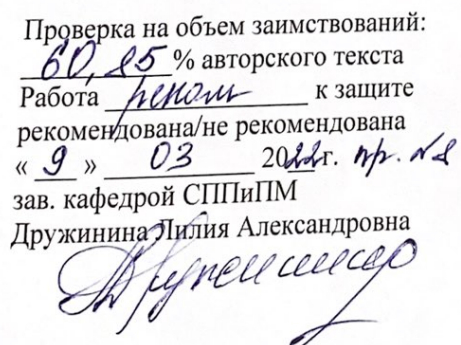 Проверка на объем заимствований:
60,85 % авторского текста
Работа реком к защите
рекомендована/не рекомендована
« 9 » 03 2022 г. пр. №8
зав. кафедрой СППиПМ
Дружинина Лилия Александровна